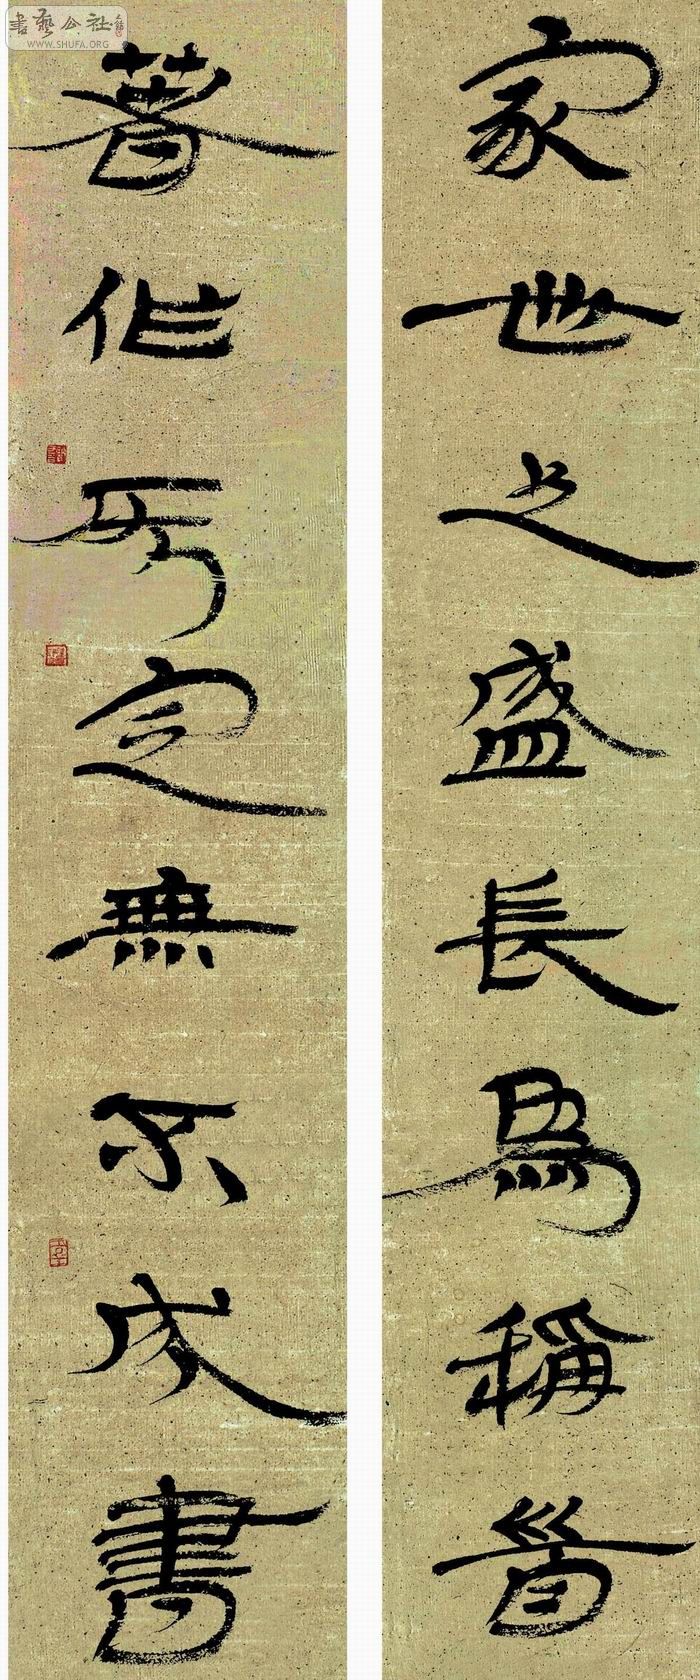 家世之盛長為稱首
著作所定無不成書
書藝公社
WWW.SHUFA.ORG